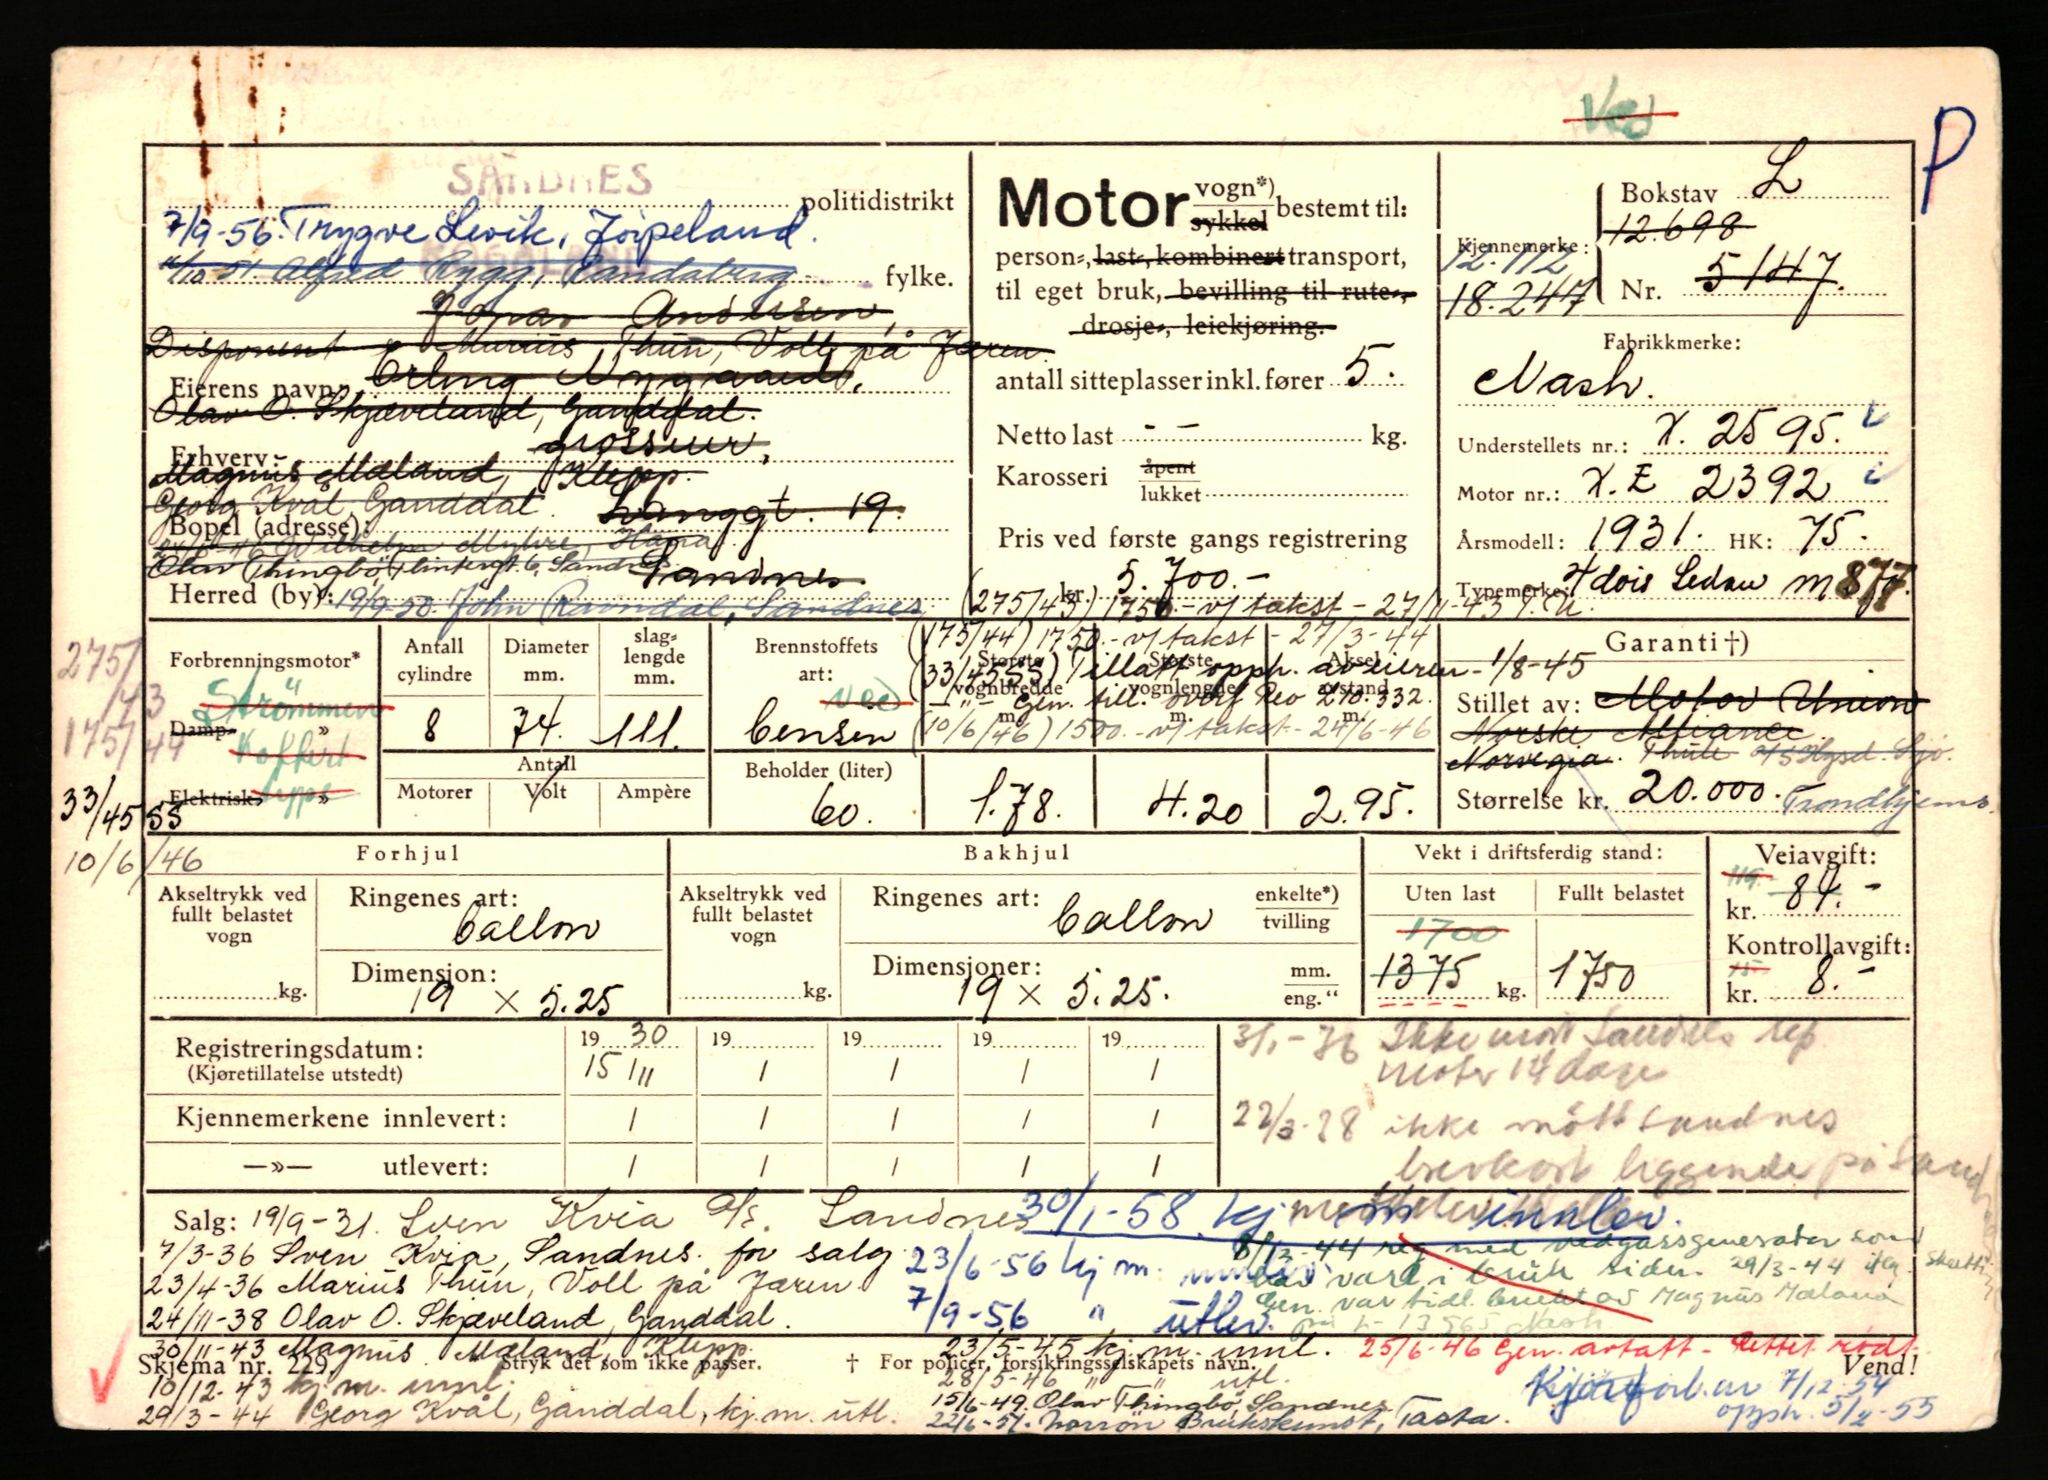 Ved
P
SANDNES politidistrikt
7/9-56. Trygve Levik, Jörpeland.
ROGALAND fylke.
11/10 51. Alfred Rygg, Randaberg
Andersen,
Disponent Marius Thun, Voll på Jæren.
Eierens navn: Erling Nygaard,
Olav O. Skjæveland, Ganddal.
Erhverv: grosserer,
Magnus Mæland, Klepp.
Georg Kvål, Ganddal.
Bopel (adresse): Langgt. 19.
Wilhelm Myhre, Hana
Olav Thingbö, Flintergt. 6, Sandnes
Sandnes
Herred (by): 19/9-50. John Ravndal, Sandnes
Motor vogn*) sykkel bestemt til:
person-, last-, kombinert transport,
til eget bruk, bevilling til rute-,
drosje-, leiekjøring.
antall sitteplasser inkl. fører 5.
Netto last - - kg.
Karosseri åpent lukket
Pris ved første gangs registrering
kr. 5.700.-
(275/43) 1750.- v/ takst - 27/11-43
(175/44) 1750.- v/ takst - 27/3-44
(33/45 SS) Tillatt opph. av eieren - 1/8-45
—"— Gen. till. overf Reo 210.332.
(10/6/46) 1500.- v/ takst - 24/6-46
Bokstav L
12.698
Kjennemerke: 12.112
18.247
Nr. 5147.
Fabrikkmerke:
Nash.
Understellets nr.: X. 2595.
Motor nr.: X.E 2392
Årsmodell: 1931. HK: 75.
Typemerke: 4 dörs Sedan m 877.
275/43
175/44
33/45 SS
10/6/46
Forbrenningsmotor*
Strömmen
Damp- »
Koffert
Elektrisk- »
type
Antall cylindre
8
Diameter mm.
74.
slag-lengde mm.
111.
Antall
Motorer Volt Ampère
Brennstoffets art:
Ved
bensin
Beholder (liter)
60.
Største vognbredde m.
1.78.
Største vognlengde m.
4.20
Aksel-avstand m.
2.95.
Garanti †)
Stillet av: Motor Union
Norske Alliance.
Norvegia. Thule
Størrelse kr. 20.000. Trondhjems.
Forhjul
Bakhjul
Akseltrykk ved fullt belastet vogn
kg.
Ringenes art:
ballon
Dimensjon:
19 × 5.25
Akseltrykk ved fullt belastet vogn
kg.
Ringenes art: enkelte*) tvilling
ballon
Dimensjoner: mm. eng."
19 × 5.25.
Vekt i driftsferdig stand:
Uten last Fullt belastet
1700
1375 kg. 1750
Veiavgift:
119.-
kr. 84.-
Kontrollavgift:
15.-
kr. 8.-
Registreringsdatum:
(Kjøretillatelse utstedt)
19 30 19 19 19 19
15/11 / / / /
Kjennemerkene innlevert: / / / / /
—»— utlevert: / / / / /
31/1-36 Ikke mött Sandnes rep.
motor 14 dage
22/3-38 ikke mött Sandnes
brevkort liggende på Sandnes
Salg: 19/9-31. Sven Kvia A/S. Sandnes
7/3-36 Sven Kvia, Sandnes. for salg
23/4-36 Marius Thun, Voll på Jæren
24/11-38 Olav O. Skjæveland, Ganddal.
30/11-43 Magnus Mæland, Klepp.
10/12-43 kj.m. innl.
29/3-44 Georg Kvål, Ganddal, kj.m. utl.
30/1-58 kj.m. innlev.
23/6-56 kj m. innlev
7/9-56 " utlev.
8/12-44 reg med vedgassgenerator som
har vært i bruk siden 29/3-44
Gen. var tidl. brukt av Magnus Mæland
på L-13565 Nash.
23/5-45 kj.m. innl.
28/5-46 " " utl.
15/6-49. Olav Thingbö, Sandnes
22/6-51. Norrön Brukskunst, Tasta.
25/6-46 Gen. avtatt - Rettet rödt.
Skjema nr. 229. *Stryk det som ikke passer. † For policer, forsikringsselskapets navn. Vend!
Kjøreforb. av 7/12-54
opph. 5/2-55